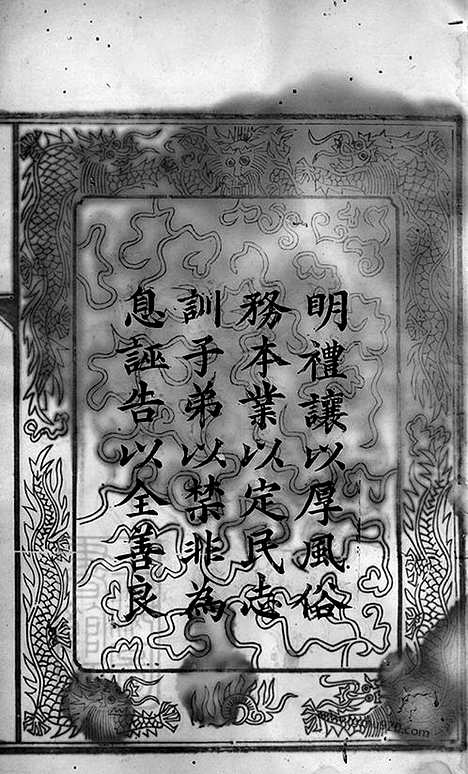 明禮讓以厚風俗
務本業以定民志
訓子弟以禁非為
息誣告以全善良